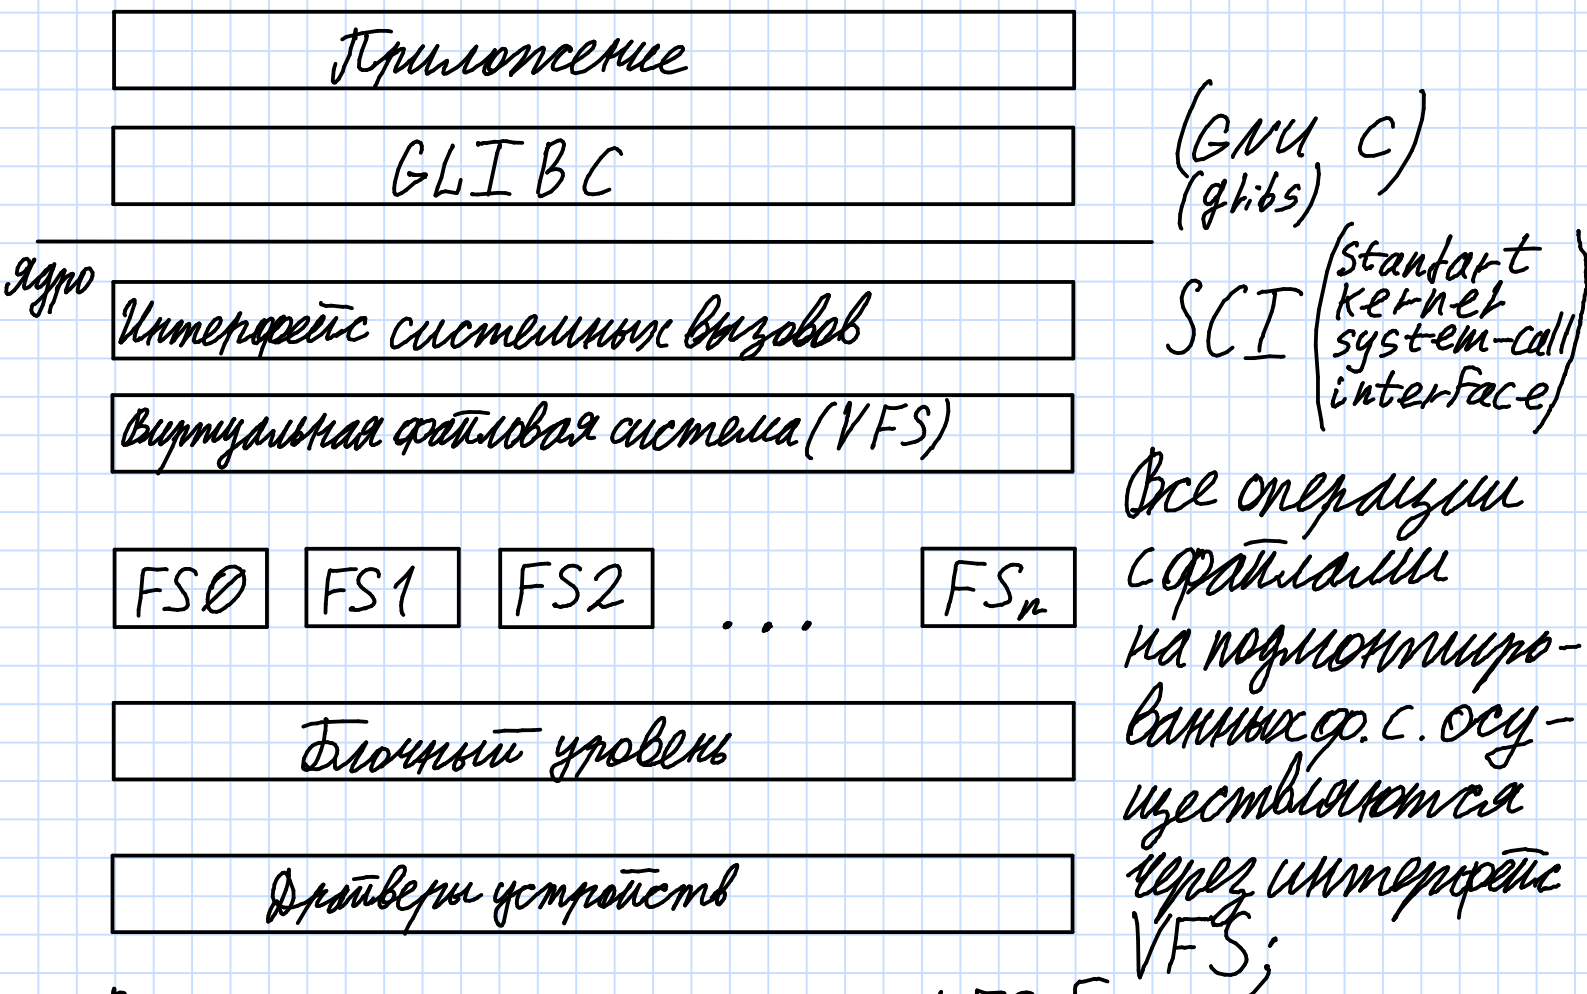 Приложение
GLIBC
(GNU C)
(glibs)
ядро
Интерфейс системных вызовов
SCI (standart
kernel
system-call
interface)
Виртуальная файловая система (VFS)
FS0 FS1 FS2 ... FSn
Блочный уровень
Драйверы устройств
Все операции
с файлами
на подмонтиро-
ванных ф. с. осу-
ществляются
через интерфейс
VFS;